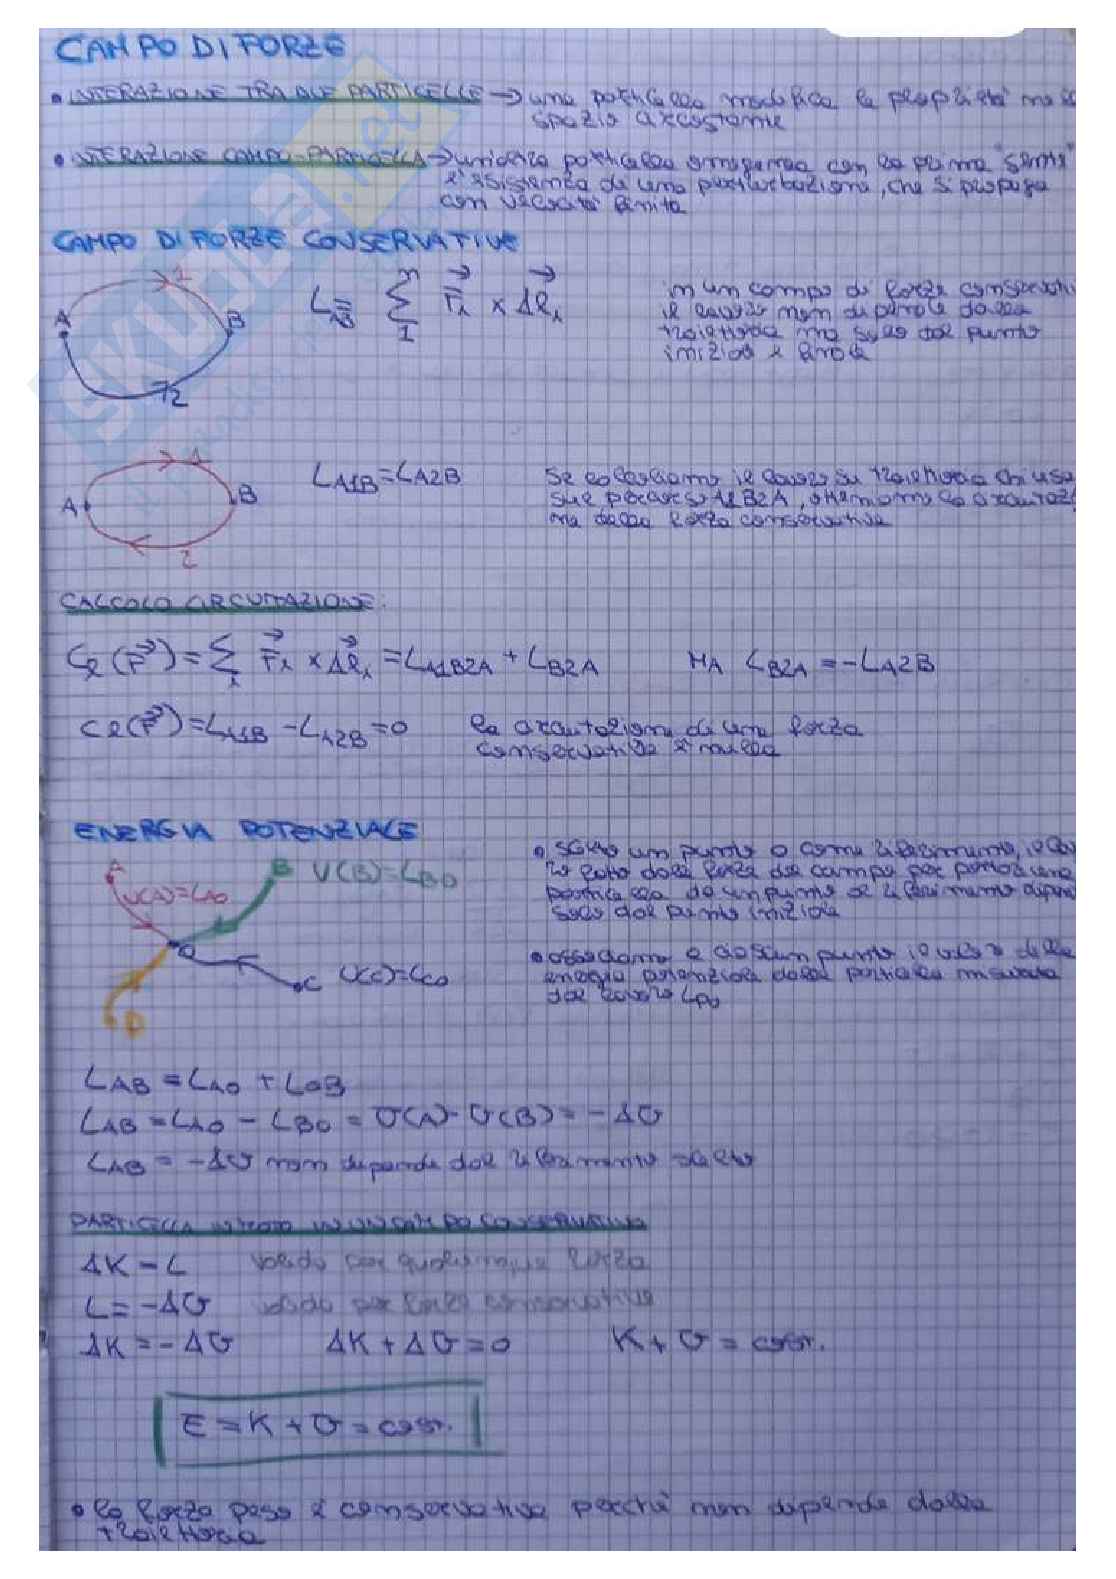 CAMPO DI FORZE
• INTERAZIONE TRA DUE PARTICELLE → una particella modifica le proprietà
spazio circostante
• INTERAZIONE CAMPO-PARTICELLA → particella omogenea con la prima "sente"
l'esistenza di una perturbazione, che si propaga
con velocità finita
CAMPO DI FORZE CONSERVATIVE
1
A
B
2
L_AB = Σ_1^n F⃗_x × Δl⃗_x
in un campo di forze conservati
il lavoro non dipende dalla
traiettoria ma solo dal punto
iniziale e finale
1
A
B
2
L_A1B = L_A2B
Se calcoliamo il lavoro su traiettoria chiusa
sul percorso A1B2A, otteniamo la circuitaz
ne della forza conservativa
CALCOLO CIRCUITAZIONE:
C_l(F⃗) = Σ_x F⃗_x × Δl⃗_x = L_A1B2A + L_B2A MA L_B2A = -L_A2B
C_l(F⃗) = L_A1B - L_A2B = 0 la circuitazione di una forza
conservativa è nulla
ENERGIA POTENZIALE
A
U(A)=L_AO
B U(B)=L_BO
O
C U(C)=L_CO
D
• scelto un punto O come riferimento, il lavo
ro fatto dalla forza del campo per portare una
particella da un punto al riferimento dipen
solo dal punto iniziale
• associamo a ciascun punto il valore della
energia potenziale della particella misurata
dal lavoro L_PO
L_AB = L_AO + L_OB
L_AB = L_AO - L_BO = U(A) - U(B) = -ΔU
L_AB = -ΔU non dipende dal riferimento scelto
PARTICELLA IN MOTO IN UN CAMPO CONSERVATIVO
ΔK = L valido per qualunque forza
L = -ΔU valido per forza conservativa
ΔK = -ΔU ΔK + ΔU = 0 K + U = cost.
E = K + U = cost.
• la forza peso è conservativa perché non dipende dalla
traiettoria
SKUOLA.net